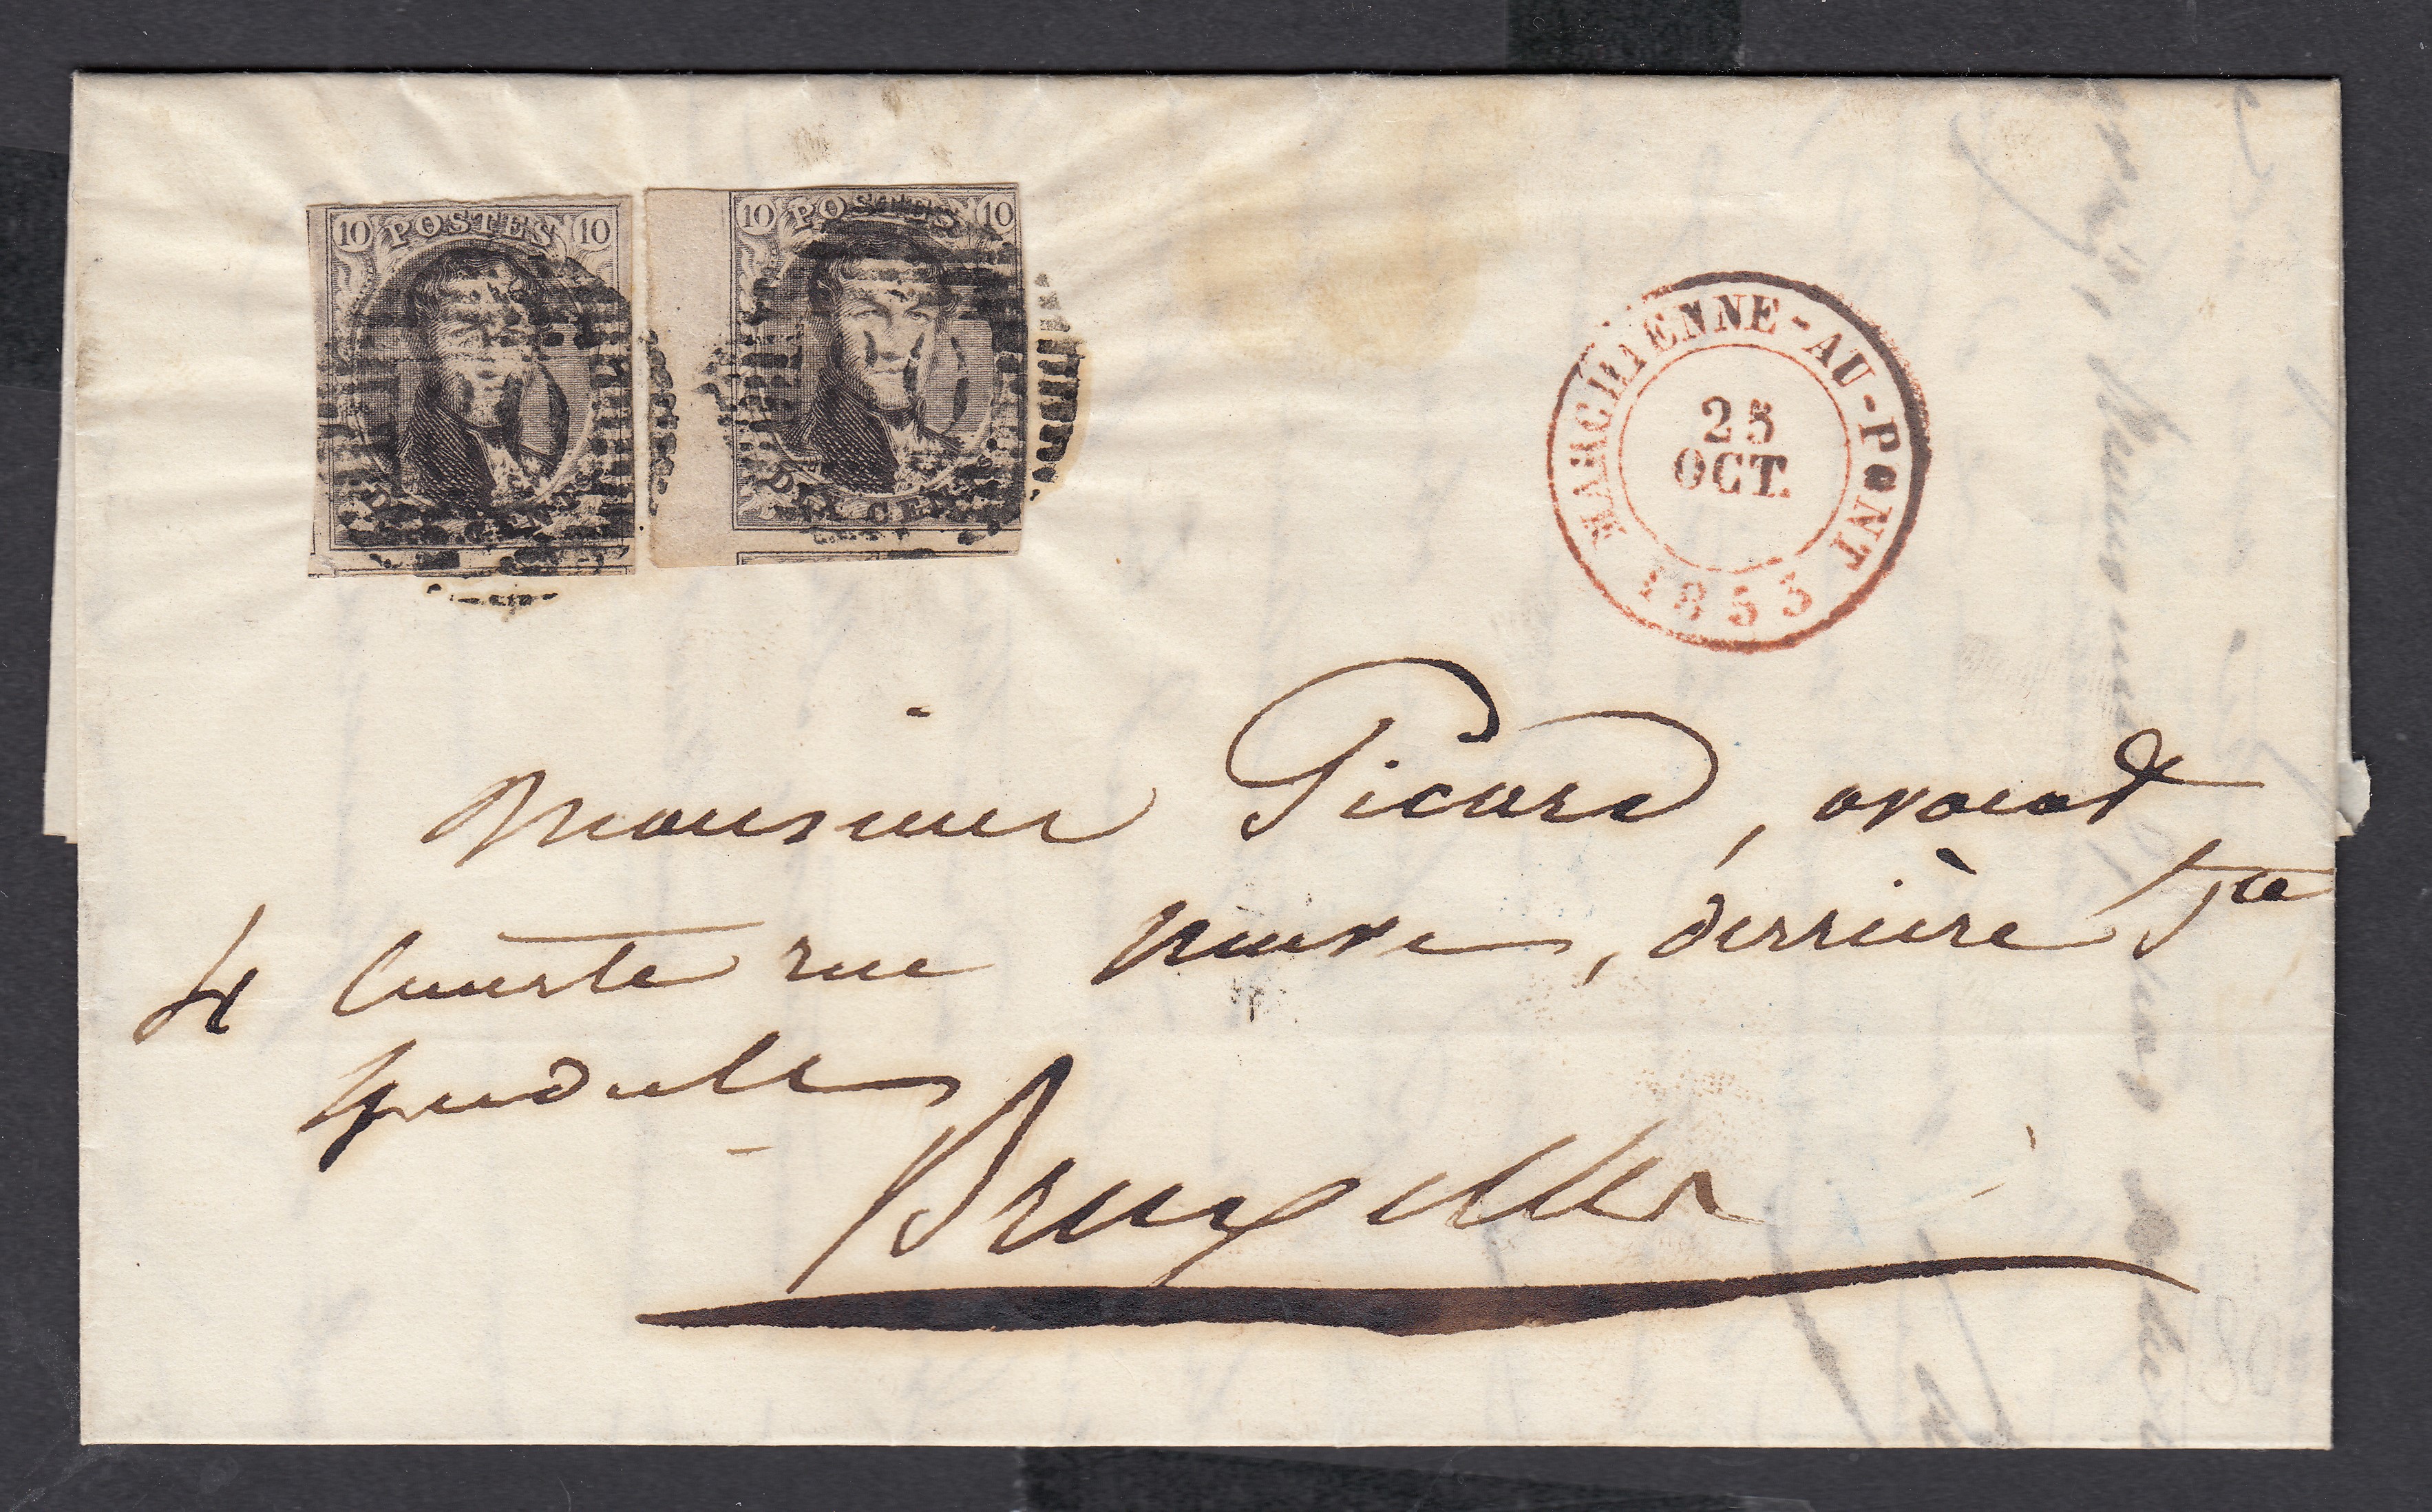 10 POSTES 10
10 POSTES 10
MARCHIENNE-AU-PONT
25
OCT.
1853
Monsieur Picard, avocat
4 Courte rue neuve, derrière Ste
Gudule
Bruxelles